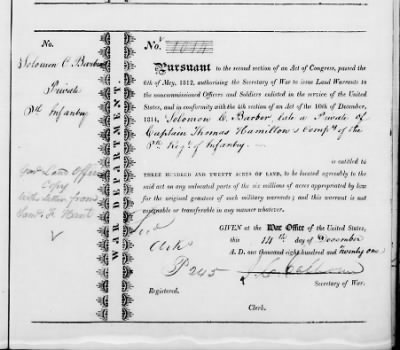 No.
Solomon C. Barbor
Private
8th Infantry
Gen'l Land Office
Copy
With letter from
Saml. F. Hunt
V
WAR DEPARTMENT.
No. 1014
Pursuant to the second section of an Act of Congress, passed the
6th of May, 1812, authorising the Secretary of War to issue Land Warrants to
the noncommissioned Officers and Soldiers enlisted in the service of the United
States, and in conformity with the 4th section of an Act of the 10th of December,
1814, Solomon C. Barbor, late a Private of
Captain Thomas Hamilton's Compy. of the
8th Regt. of Infantry
is entitled to
THREE HUNDRED AND TWENTY ACRES OF LAND, to be located agreeably to the
said act on any unlocated parts of the six millions of acres appropriated by law
for the original grantees of such military warrants; and this warrant is not
assignable or transferable in any manner whatever.
GIVEN at the War Office of the United States,
this 14th day of December
A. D. one thousand eight hundred and twenty one
Ark
P 245
J. C. Calhoun
Secretary of War.
Registered.
Clerk.